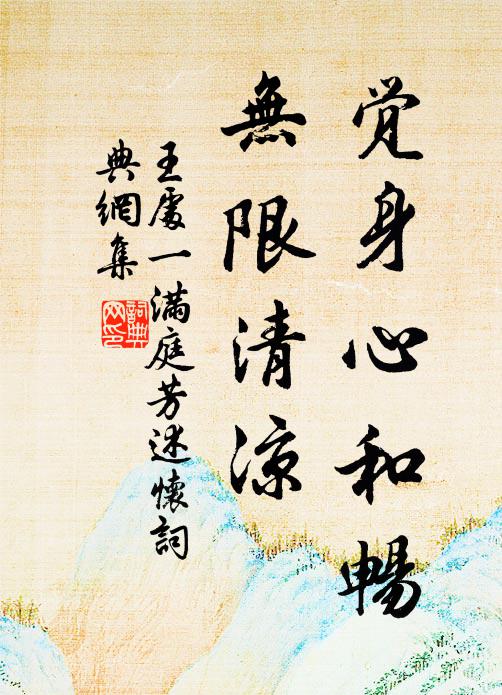 覚身心和暢
無限清涼
王處一满庭芳述懷詞
典網集
詞典网印